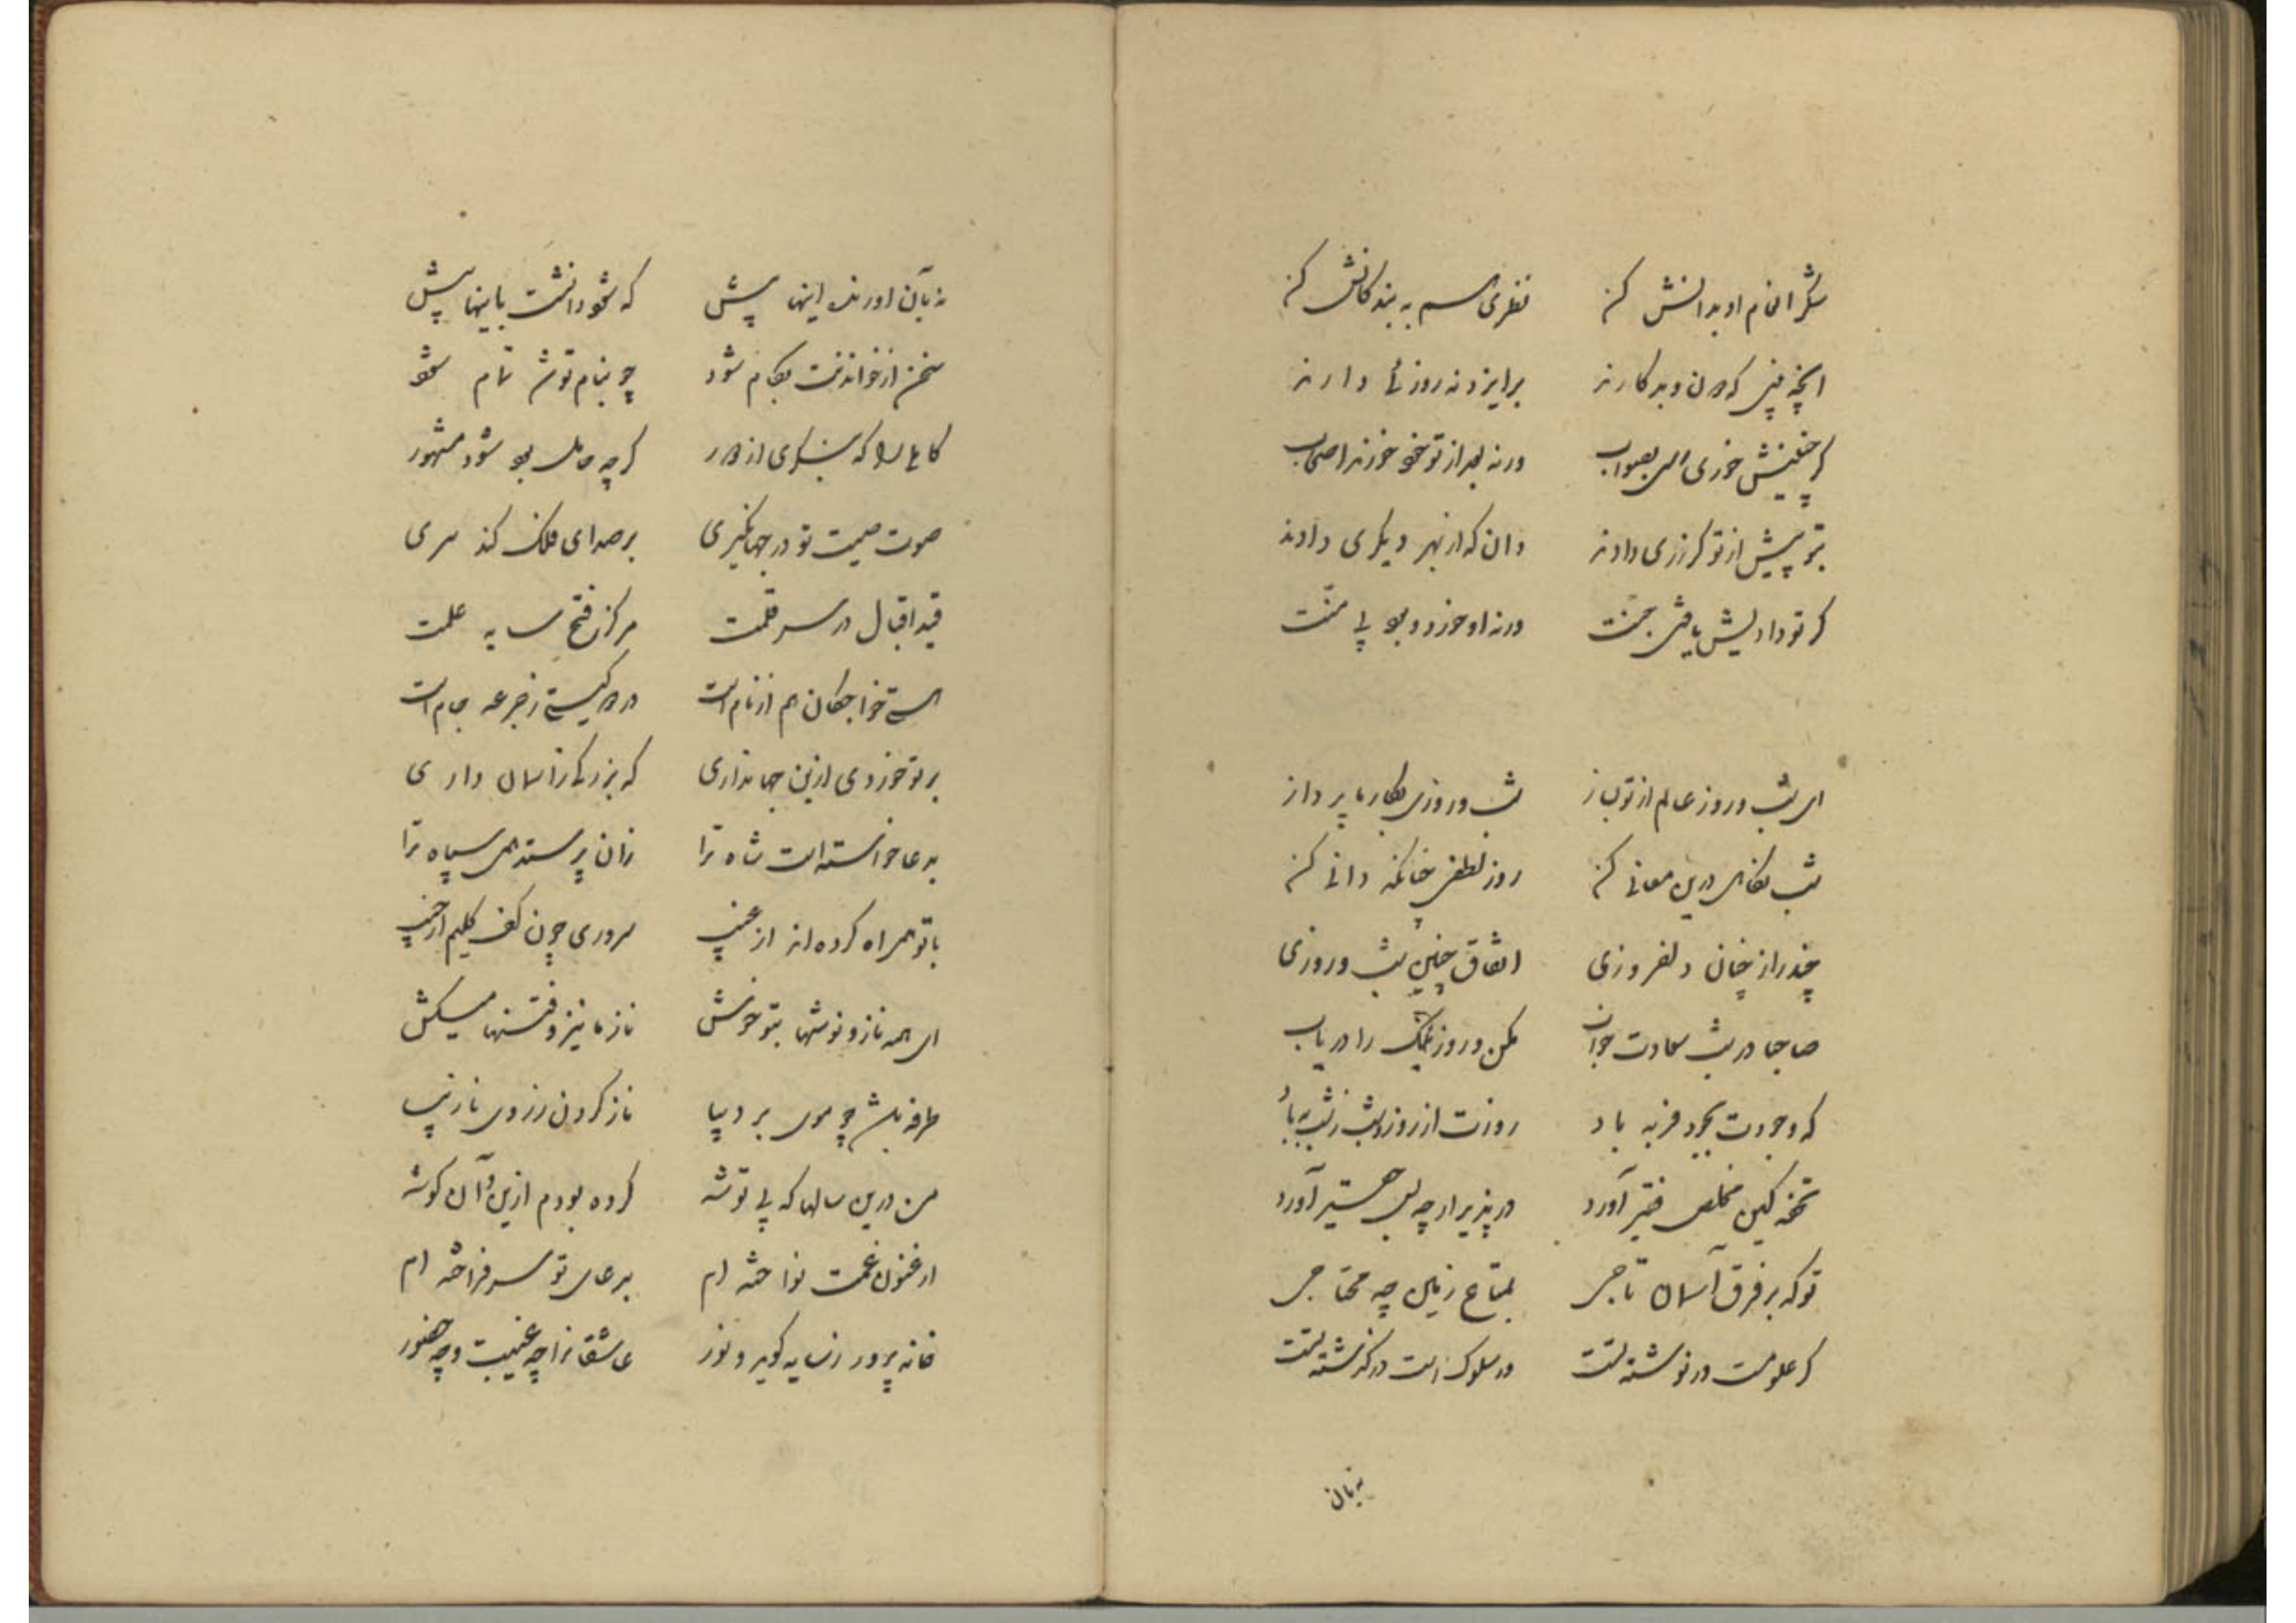 شکر انعام او بدانش کن نظری هم به بندگانش کن
اینچه بینی که در و بد کارند بر ایزد نه روزئی دارند
گر خنیش خوری همی بصواب ورنه بعد از تو خود خورند اصحاب
بتو پیش از تو گر زری دادند وان که از بهر دیگری دادند
گر تو دادیش یافتی جنت ورنه او خورد و بود بی منت
ای شب و روز عالم از تو بساز شب و روزی بکار ما پرداز
شب نگاهی درین معانی کن روز لطفی چنانکه دانی کن
چند راز چنان دلفروزی اتفاق چنین شب و روزی
صاحبا در شب سعادت خواب مکن و روز نیک را دریاب
که وجودت بجود فربه باد روزت از روز و شب ز شب به باد
تحفه کین مخلص فقیر آورد در پذیر ارچه بس حقیر آورد
تو که بر فرق آسمان تاجی بمتاع زمین چه محتاجی
گر علومست در نوشته تست ور سلوک است در گذشته تست
به زبان
به زبان آورند اینها پیش که شود دانشت باینها بیش
سخن از خواندنت بکام شود چو بنام تو شد تمام شود
کاهلی را که بنگری از دور گر چه خامل بود شود مشهور
صوت صیت تو در جهانگیری بر صدای فلک کند میری
قید اقبال در سر قلمت مرکز فتح سایه علمت
هستی خواجگان هم از نام است در گیتی ز جرعه جام است
بر تو خوردی ازین جهانداری که بزرگی ز آسمان داری
بدعا خواسته است شاه ترا زان پرستد همی سپاه ترا
با تو همراه کرده‌اند از غیب سروری چون کف کلیم از جیب
ای همه ناز و نوشها بتو خوش ناز ما نیز وقتها میکش
طرفه باشد چو موی بر دیبا ناز کردن ز روی نازیبا
من درین سالها که بی توشه کرده بودم ازین و آن گوشه
ارغنون غمت نواخته ام بدعای تو سر فراخته ام
خانه پرور ز سایه گوید و نور عاشقانرا چه غیبت و چه حضور